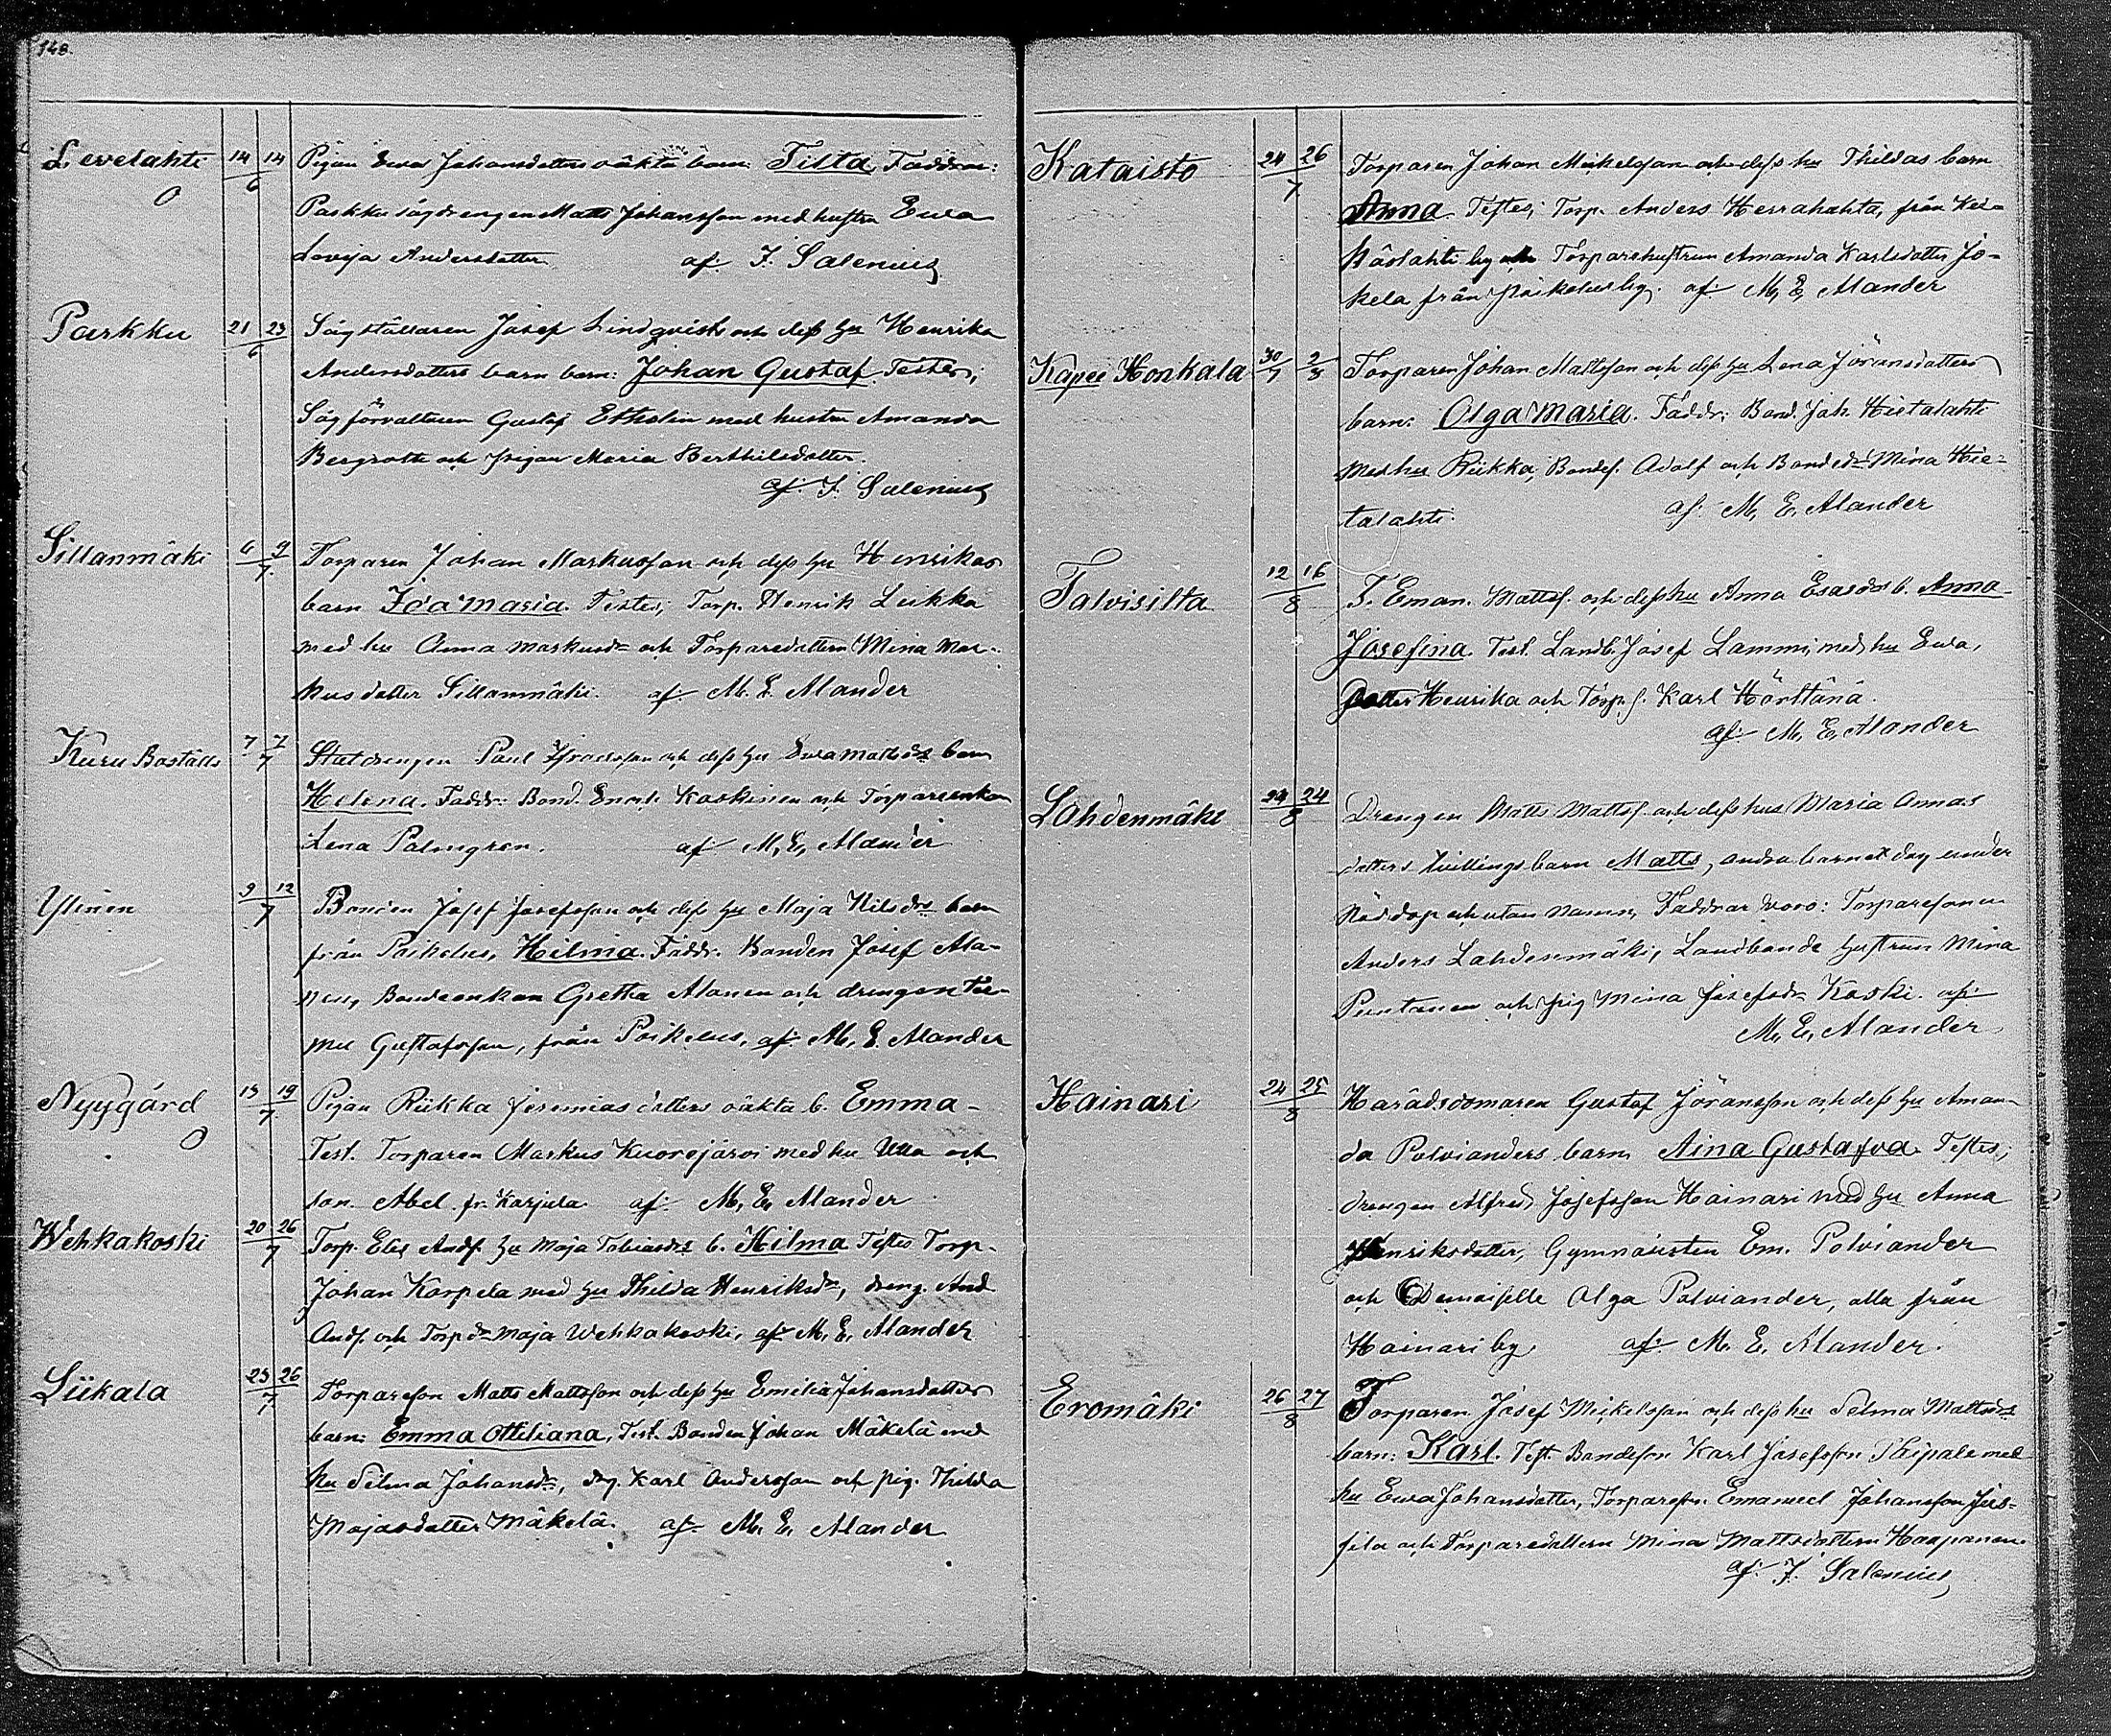 148.
Levelahti 14 14 / 6 Pigan Ewa Johansdotters oäkta barn: Tilta. Faddrar:
Parkku sågdrengen Matts Johansson med hustru Ewa
Lovisa Andersdotter. af J. Salenius
Parkku 21 23 / 6 Sågställaren Josef Lindqvist och dess hu Henrika
Andersdotters barn: Johan Gustaf. Testes;
Sågförvaltaren Gustaf Etholin med hustru Amanda
Bergroth och pigan Maria Berthilsdotter.
af J. Salenius
Sillanmäki 6 9 / 7 Torparen Johan Markusson och dess hu Henrikas
barn Ida Maria. Testes; Torp. Henrik Luikka
med hu Anna Markusdr och Torparedottern Mina Mar-
kusdotter Sillanmäki. af M. E. Alander
Kuru Boställe 7 7 / 7 Statdrengen Paul och dess hu Ewa Mattsdrs barn
Helena. Faddr: Bond. Enok Koskinen och Torpareenkan
Lena Palmgren. af M. E. Alander
Ylinen 9 12 / 7 Bonden Josef Josefsson och dess hu Maja Nilsdrs barn
från Poikelus, Hilma. Faddr. Bonden Josef Ala-
nen, Bondeenkan Gretha Alanen och drengen
Gustafsson, från Poikelus, af M. E. Alander
Nyygård 15 19 / 7 Pigan Riikka Jeremiasdotters oäkta b. Emma-
Test. Torparen Markus Kuorejärvi med hu Ulla och
son. Abel fr. Karjula af M. E. Alander
Wehkakoski 20 26 / 7 Torp. Elis Andf. hu Maja Tobiasdrs b. Hilma Testes Torp.
Johan Korpela med hu Thilda Henriksdr, dreng. And
Andf. och Torp.dr Maja Wehkakoski, af M. E. Alander
Liikala 25 26 / 7 Torpareson Matts Mattsson och dess hu Emilia Johansdotters
barn: Emma Ottiliana, Test. Bonden Johan Mäkelä med
hu Selma Johansdr, drg. Karl Andersson och pig. Thilda
Majasdotter Mäkelä. af M. E. Alander
Kataisto 24 26 / 7 Torparen Johan Mickelsson och dess hu Thildas barn
Anna. Testes; Torp. Anders Herrahahta, från Kei-
häslahti by och Torparehustrun Amanda Karlsdotter Jo-
kela från Poikelus by. af M. E. Alander
Kapee Honkala 30 / 7 2 / 8 Torparen Johan Mattsson och dess hu Lena Jöransdotters
barn: Olga Maria. Faddr: Bond. Joh. Hietalahti
med hu Riikka, Bondes. Adolf och Bonded:r Mina Hie-
talahti. af M. E. Alander
Talvisilta 12 16 / 8 T. Eman. Mattsf. och dess hu Anna Esasdrs b. Anna
Josefina. Test. Landb. Josef Lammi, med hu Ewa,
Dotter Henrika och Torp. s. Karl Hörttänä.
af M. E. Alander
Lahdenmäki 23 24 / 8 Drengen Matts Mattsf. och dess hus Maria Annas
dotters tvillingsbarn Matts, andra barnet dog under
Nöddop och utan namn, Faddrar woro: Torparesonen
Anders Lahdenmäki, Landbonde hustrun Mina
Puntanen och pig Mina Josefsdr Koski. af
M. E. Alander
Hainari 24 25 / 8 Häradsdomaren Gustaf Jöransson och dess hu Aman-
da Polvianders barn Aina Gustafva. Testes;
drengen Alfred Josefsson Hainari med hu Anna
Henriksdotter, Gymnaisten Em. Polviander
och Demoiselle Olga Polviander, alla från
Hainari by. af M. E. Alander.
Eromäki 26 27 / 8 Torparen Josef Mickelsson och dess hu Selma Mattsdrs
barn: Karl. Test. Bondeson Karl Josefsson med
hu Ewa Johansdotter, Torpareson Emanuel Johansson Jus-
sila och Torparedottern Mina Mattsdottern Haapanen.
af J. Salenius